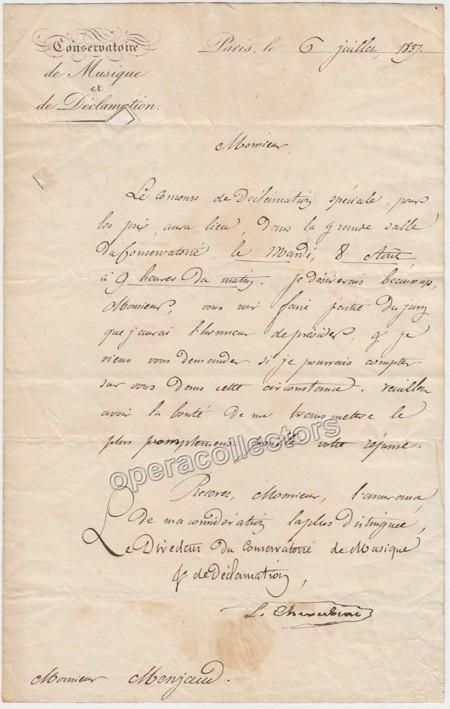 Conservatoire
de Musique
et
de Déclamation.
Paris, le 6 juillet, 1837.
Monsieur
Le concours de déclamation spéciale, pour
les prix, aura lieu, dans la grande salle
du Conservatoire, le Mardi, 8 Août,
à 9 heures du matin. Je désirerais beaucoup,
Monsieur, vous voir faire partie du jury
que j'aurai l'honneur de présider, & je
viens vous demander si je pourrais compter
sur vous dans cette circonstance. veuillez
avoir la bonté de me transmettre le
plus promptement votre réponse.
operacollectors
Recevez, Monsieur, l'assurance
de ma considération la plus distinguée,
Le Directeur du Conservatoire de Musique
& de Déclamation,
L. Cherubini
Monsieur Menjaud.